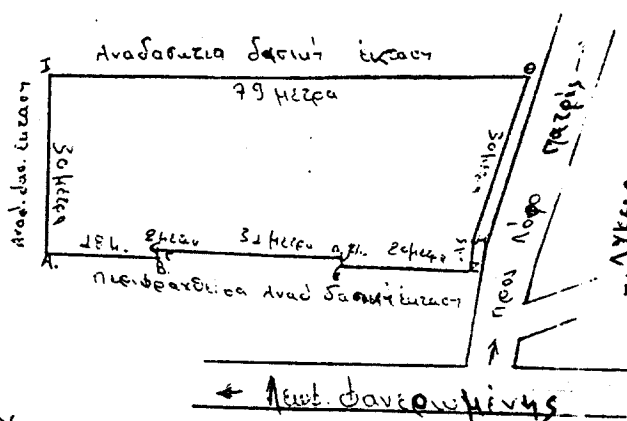 Αναδασωτέα δασική έκταση
Ι
Θ
79 μέτρα
Αναδ. δασ. έκταση
30 μέτρα
30 μέτρα
18 μ.
2 μέτρα
31 μέτρα
2 μ.
20 μέτρα
Α.
Β.
Περιφραχθείσα Αναδασωτέα έκταση
προς Λόφο Πατρίς
← Λεωφ. Φανερωμένης